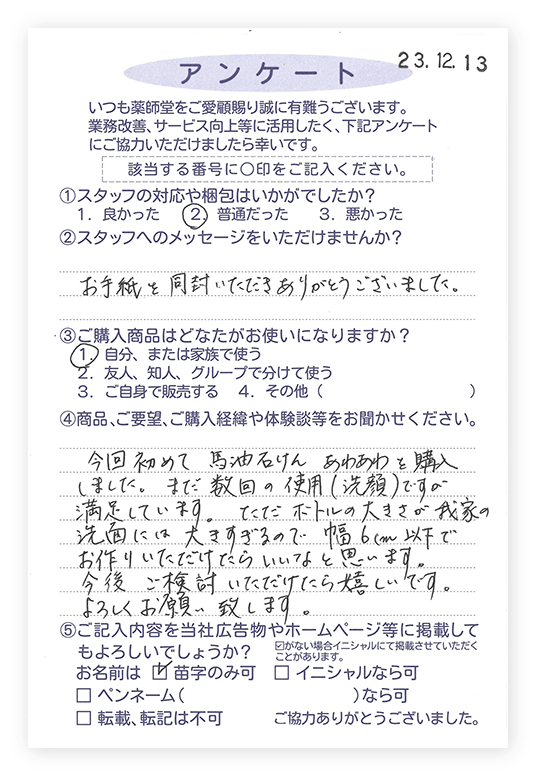 23.12.13
アンケート
いつも薬師堂をご愛顧賜り誠に有難うございます。
業務改善、サービス向上等に活用したく、下記アンケート
にご協力いただけましたら幸いです。
該当する番号に○印をご記入ください。
①スタッフの対応や梱包はいかがでしたか?
1. 良かった 2. 普通だった 3. 悪かった
②スタッフへのメッセージをいただけませんか?
お手紙を同封いただきありがとうございました。
③ご購入商品はどなたがお使いになりますか?
1. 自分、または家族で使う
2. 友人、知人、グループで分けて使う
3. ご自身で販売する 4. その他( )
④商品、ご要望、ご購入経緯や体験談等をお聞かせください。
今回初めて 馬油石けん あわあわを購入
しました。まだ数回の使用(洗顔)ですが
満足しています。ただボトルの大きさが我家の
洗面には大きすぎるので 幅6cm以下で
お作りいただけたらいいなと思います。
今後 ご検討いただけたら嬉しいです。
よろしくお願い致します。
⑤ご記入内容を当社広告物やホームページ等に掲載して
もよろしいでしょうか? ☑がない場合イニシャルにて掲載させていただく
ことがあります。
お名前は ☑ 苗字のみ可 □ イニシャルなら可
□ ペンネーム( )なら可
□ 転載、転記は不可 ご協力ありがとうございました。